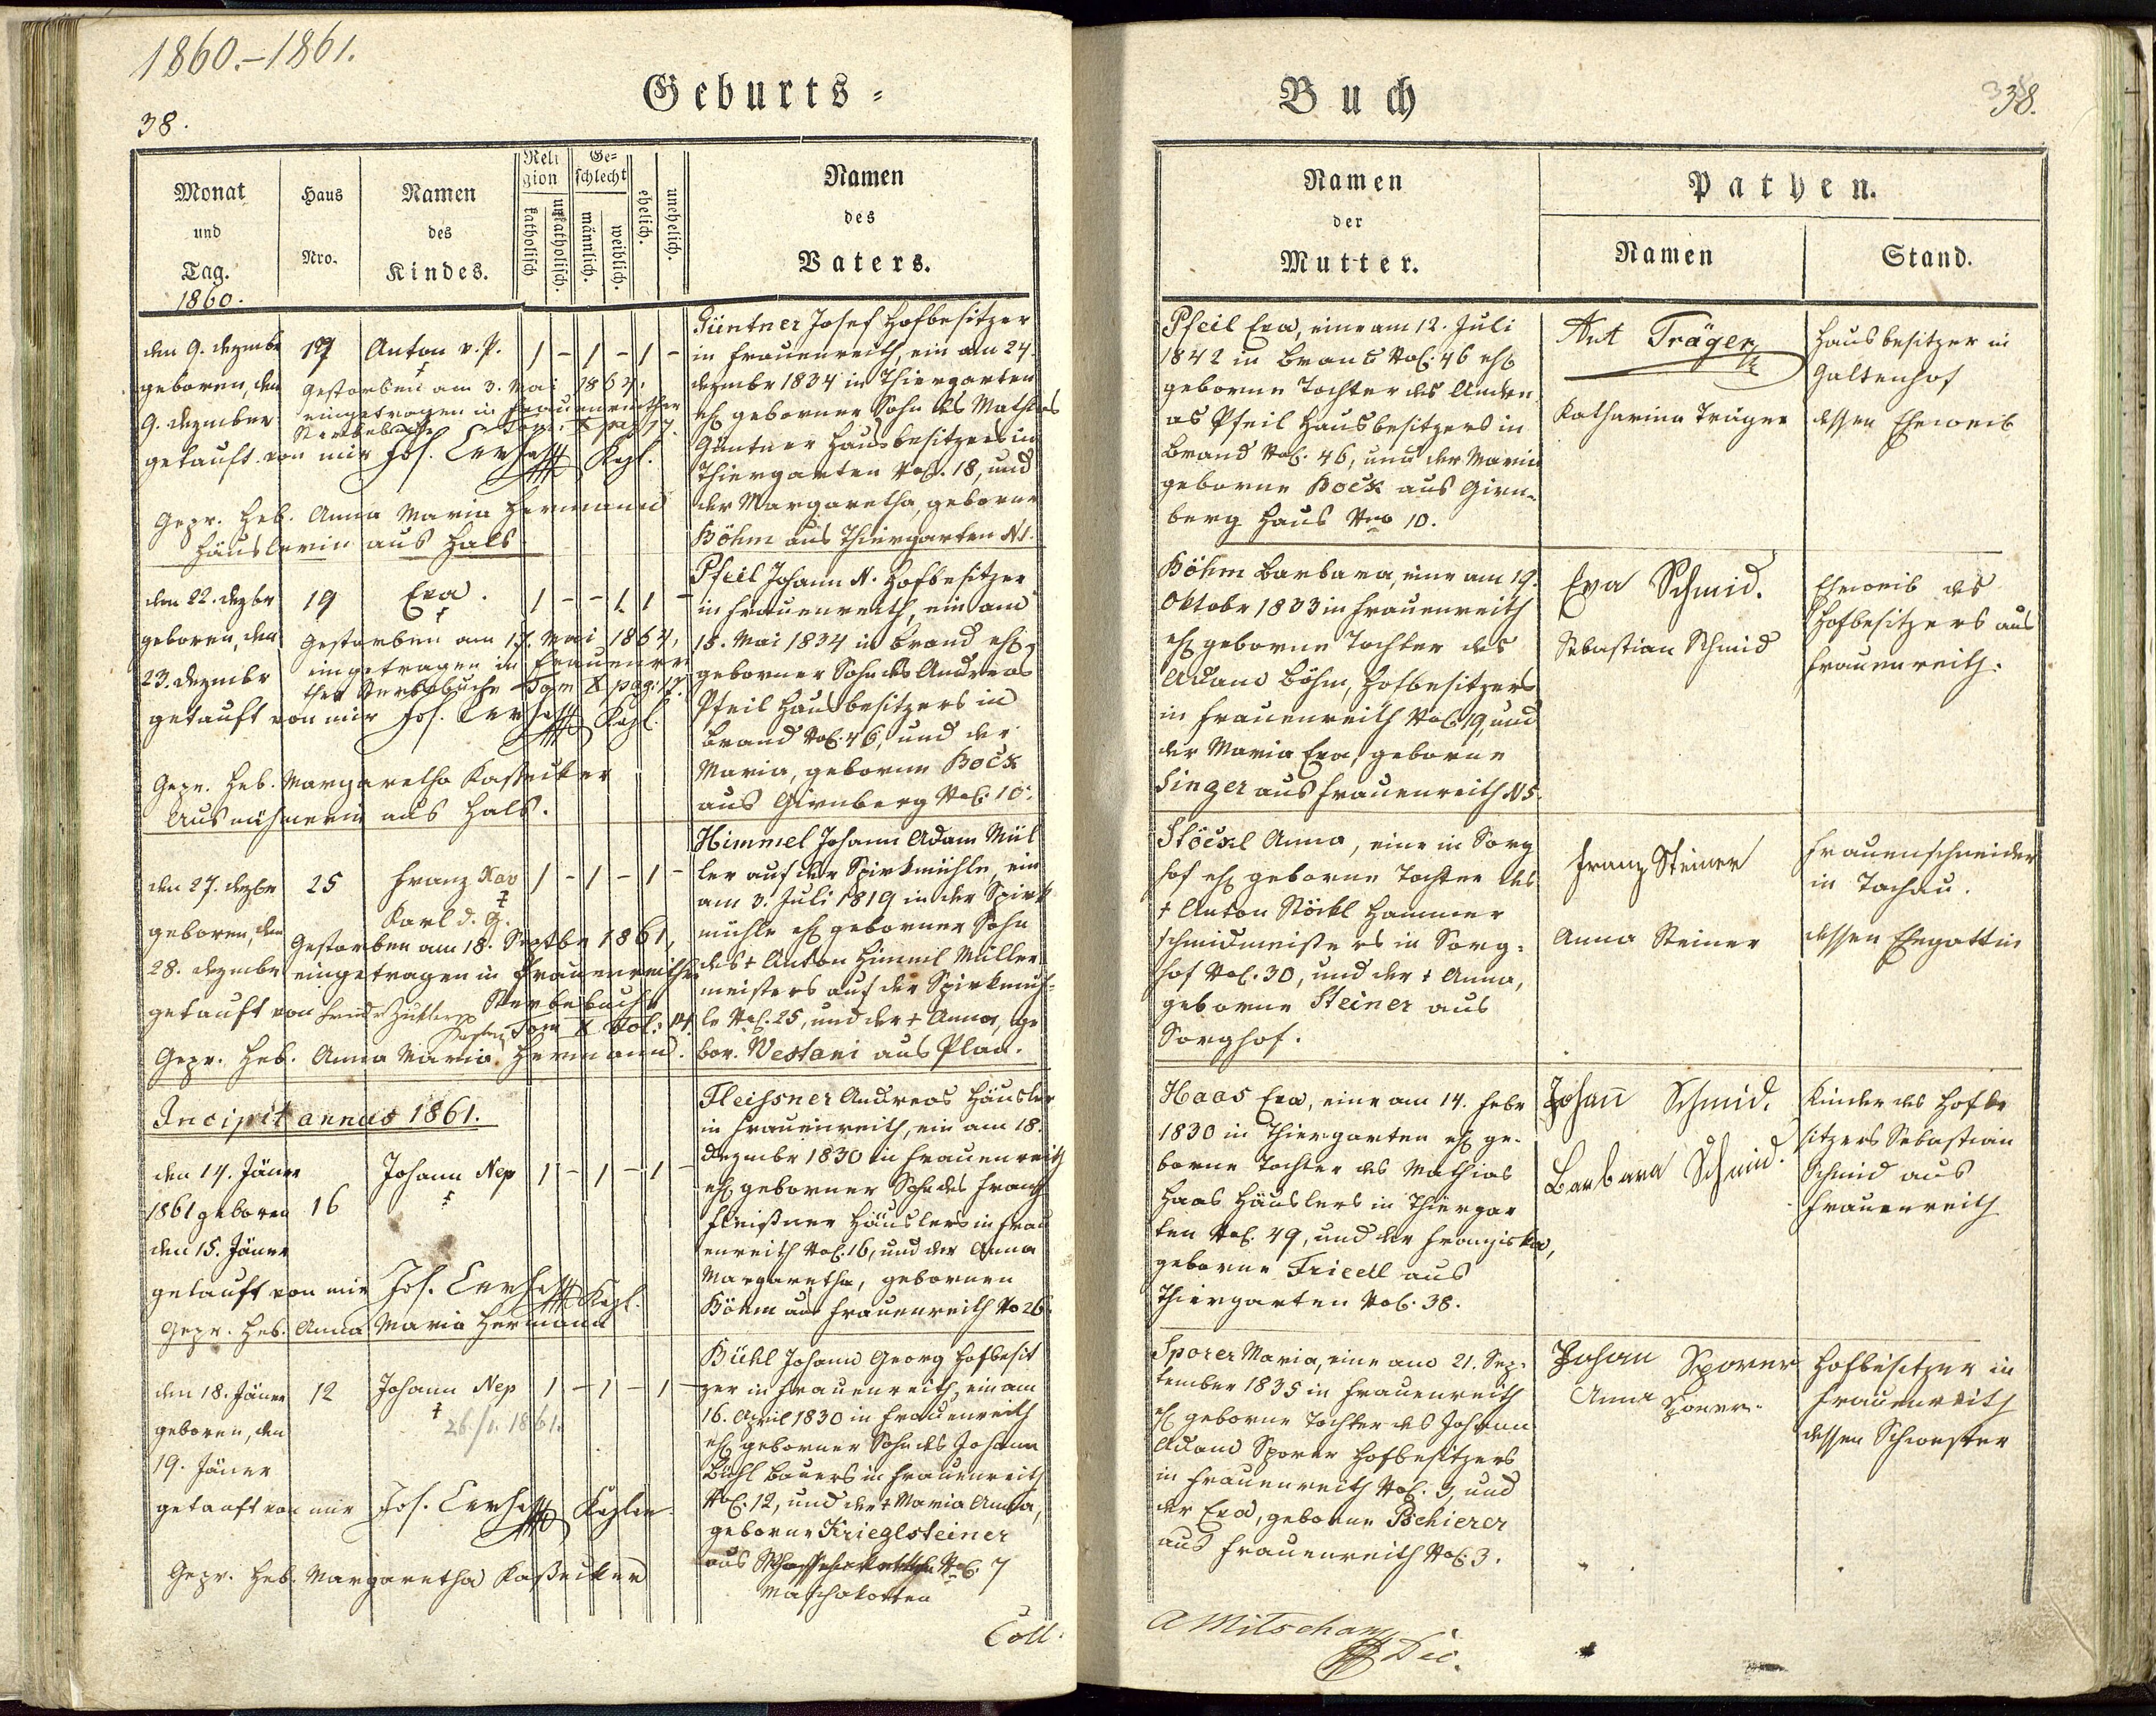 1860.–1861.
Geburts-
38.
Monat
und
Tag.
1860.
Haus
Nro.
Namen
des
Kindes.
Reli
gion
katholisch
unkatholisch.
Ge-
schlecht
männlich.
weiblich.
ehelich.
unehelich.
Namen
des
Vaters.
den 9. Dezember 17 Anton v. P. 1 – 1 – 1 –
geboren, den
9. Dezember
Gestorben am 3. Mai 1864.
eingetragen in Frauenreither
Sterbebuche Tom. X pag 17.
getauft von mir Jos. Kapl.
Gepr. Heb. Anna Maria Hermann
Häuslerin aus Hals
Güntner Josef Hofbesitzer
in Frauenreith, ein am 24.
Dezember 1834 in Thiergarten
ehl geborner Sohn des Mathias
Güntner Hausbesitzers in
Thiergarten No. 18, und
der Margaretha, geborne
Böhm aus Thiergarten N 1.
den 22. Dezbr 19 Eva. 1 – – 1 1 –
geboren, den
23. Dezember
Gestorben am 17. Mai 1864,
eingetragen in Frauenrei
ther Sterbebuche Tom X pag: 17.
getauft von mir Jos. Kapl.
Gepr. Heb. Margaretha Kassecker
Ausnähmerin aus Hals.
Pfeil Johann N. Hofbesitzer
in Frauenreith, ein am
15. Mai 1834 in Brand ehl
geborner Sohn des Andreas
Pfeil Hausbesitzers in
Brand No: 46, und der
Maria, geborne Bock
aus Girnberg No: 10.
den 27. Dezbr 25 Franz Xav 1 – 1 – 1 –
Karl d. G.
geboren, den
28. Dezember
Gestorben am 18. Septbr 1861,
eingetragen in Frauenreither
Sterbebuch
Tom X Fol: 14.
getauft von
Gepr. Heb. Anna Maria Hermann.
Himmel Johann Adam Mül
ler auf der Spirkmühle, ein
am 3. Juli 1819 in der Spirk
mühle ehl geborner Sohn
des † Anton Himmel Müller
meisters auf der Spirkmüh-
le No. 25, und der † Anna, ge
bor. Westani aus Plan.
Incipit annus 1861.
den 14. Jäner Johann Nep 1 – 1 – 1 –
1861 geboren 16
den 15. Jäner
getauft von mir Jos. Kapl.
Gepr. Heb. Anna Maria Hermann
Fleissner Andreas Häusler
in Frauenreith, ein am 18.
Dezember 1830 in Frauenreith
ehl geborner Sohn des Franz
Fleißner Häuslers in Frau
enreith No. 16, und der Anna
Margaretha, gebornen
Böhm aus Frauenreith No 26.
den 18. Jäner 12 Johann Nep 1 – 1 – 1 –
26./1. 1861.
geboren, den
19. Jäner
getauft von mir Jos. Kaplan
Gepr. Heb. Margaretha Kassecker
Bühl Johann Georg Hofbesit
zer in Frauenreith, ein am
16. April 1830 in Frauenreith
ehl geborner Sohn des Johann
Bühl Bauers in Frauenreith
No: 12, und der † Maria Anna,
geborne Krieglsteiner
aus No. 7
Maschakotten
Coll.
Buch
38.
Namen
der
Mutter.
Pathen.
Namen
Stand.
Pfeil Eva, eine am 12. Juli
1842 in Brand No: 46 ehl
geborne Tochter des Andre
as Pfeil Hausbesitzers in
Brand No: 46, und der Maria
geborne Bock aus Girn-
berg Haus Nro 10.
Ant Träger
Katharina Träger
Hausbesitzer in
Galtenhof
dessen Eheweib
Böhm Barbara, eine am 19.
Oktobr 1833 in Frauenreith
ehl geborne Tochter des
Adam Böhm, Hofbesitzers
in Frauenreith No: 19, und
der Maria Eva, geborne
Singer aus Frauenreith N 5.
Eva Schmid.
Sebastian Schmid
Eheweib des
Hofbesitzers aus
Frauenreith.
Stöckl Anna, eine in Sorg
hof ehl geborne Tochter des
† Anton Stöckl Hammer
schmidmeisters in Sorg-
hof No. 30, und der † Anna,
geborne Steiner aus
Sorghof.
Franz Steiner
Anna Steiner
Frauenschneider
in Tachau.
dessen Ehegattin
Haas Eva, eine am 14. Febr
1830 in Thiergarten ehl ge-
borne Tochter des Mathias
Haas Häuslers in Thiergar
ten No. 49, und der Franziska,
geborne Friedl aus
Thiergarten No. 38.
Johan̄ Schmid.
Barbara Schmid.
Kinder des Hofbe
sitzers Sebastian
Schmid aus
Frauenreith
Sporer Maria, eine am 21. Sep-
tember 1835 in Frauenreith
ehl geborne Tochter des Johann
Adam Sporer Hofbesitzers
in Frauenreith No. 3, und
der Eva, geborne Pschierer
aus Frauenreith No. 3.
Johan Sporer
Anna Sporer.
Hofbesitzer in
Frauenreith
dessen Schwester
A Mitscha
Dec.